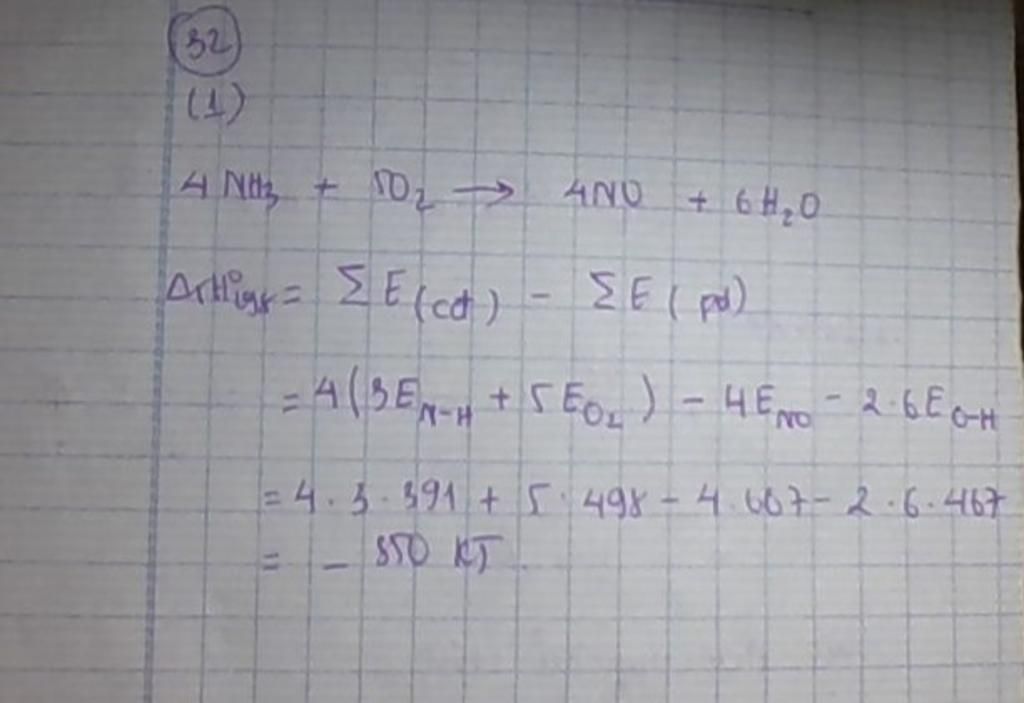 32
(1)
4 NH3 + 5O2 → 4NO + 6H2O
ΔrH°298 = ΣE(cđ) - ΣE(pđ)
= 4(3E N-H + 5E O2) - 4E NO - 2.6E O-H
= 4.3.391 + 5.498 - 4.607 - 2.6.467
= - 850 KJ